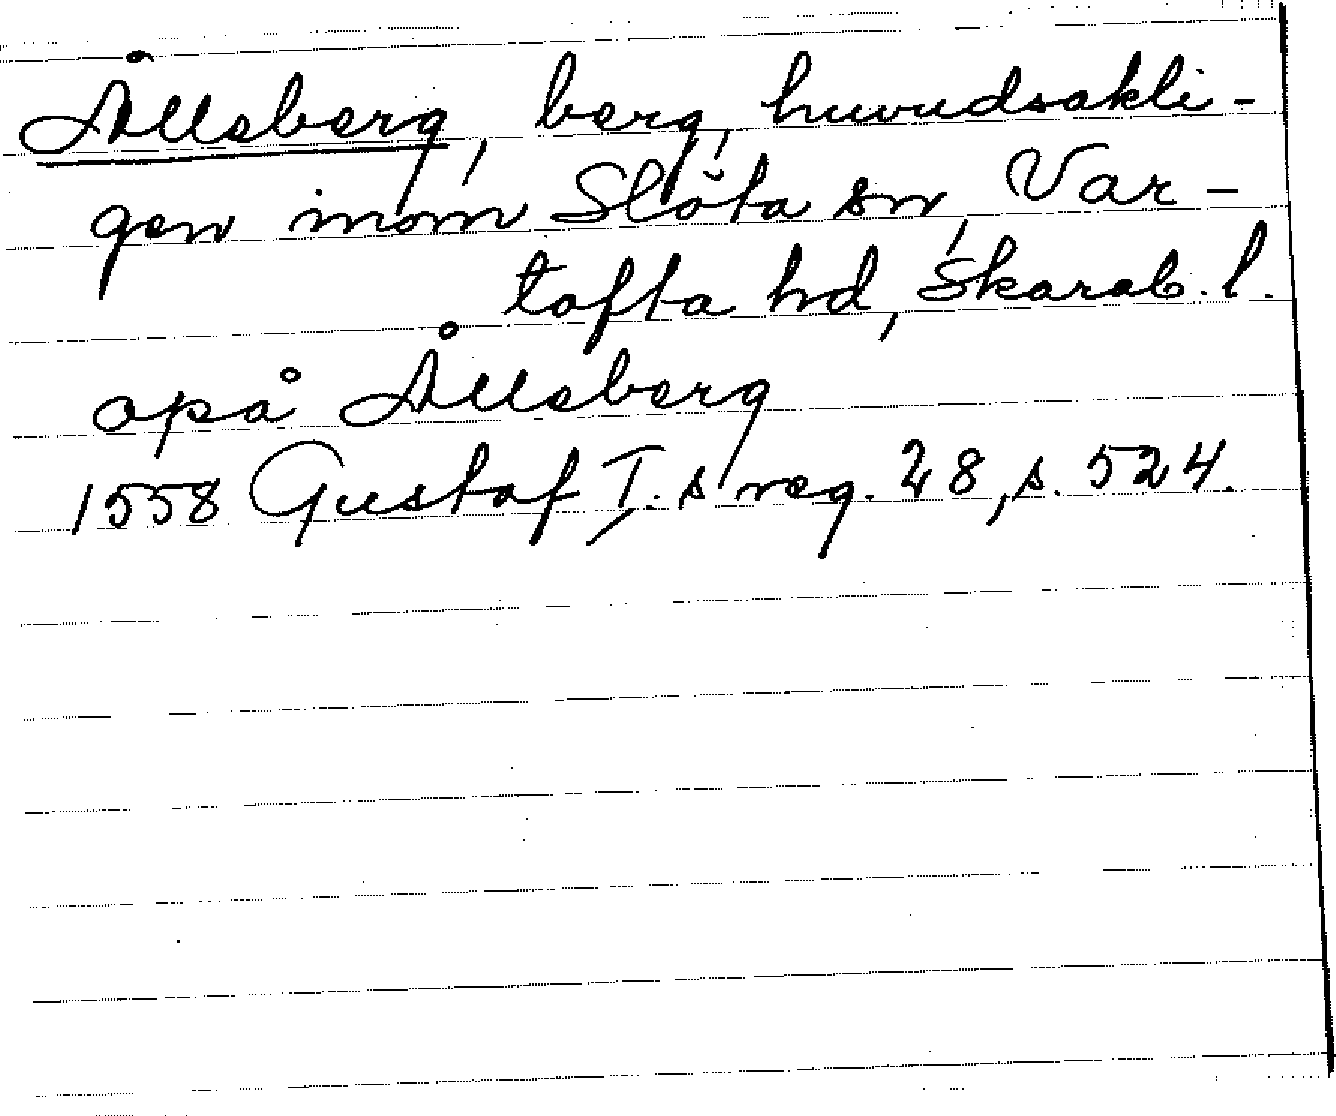 Ållsberg, berg, huvudsakli-
gen inom Slöta sn, Var-
tofta hd, Skarab. l.
opå Ållsberg
1558 Gustaf I. s reg. 28, s. 524.